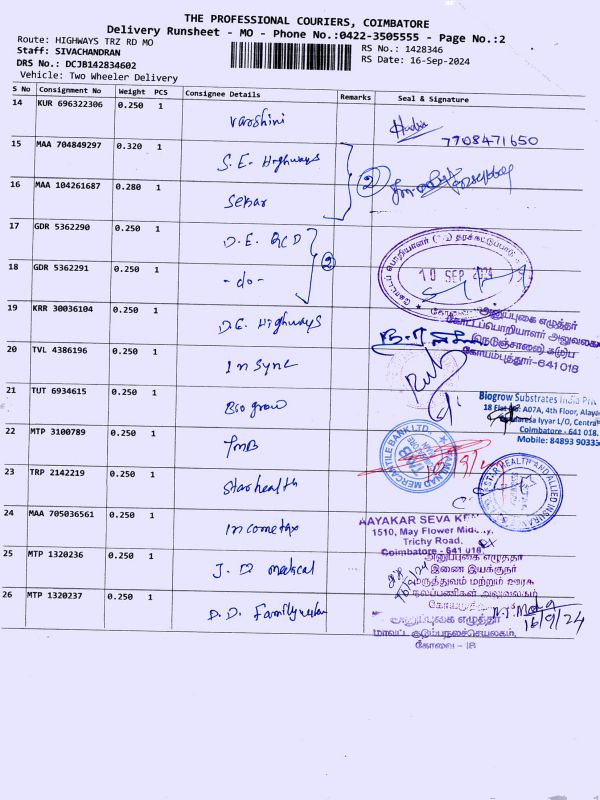 THE PROFESSIONAL COURIERS, COIMBATORE
Delivery Runsheet - MO - Phone No.:0422-3505555 - Page No.:2
Route: HIGHWAYS TRZ RD MO
RS No.: 1428346
Staff: SIVACHANDRAN
RS Date: 16-Sep-2024
DRS No.: DCJB142834602
Vehicle: Two Wheeler Delivery
S No Consignment No Weight PCS Consignee Details Remarks Seal & Signature
14 KUR 696322306 0.250 1 Varshini 7708471650
15 MAA 704849297 0.320 1 S.E. Highways
16 MAA 104261687 0.280 1 Sekar
2
17 GDR 5362290 0.250 1 D.E. QCD
18 GDR 5362291 0.250 1 -do-
2
19 KRR 30036104 0.250 1 D.E. Highways
அனுப்புகை எழுத்தர்
கோட்டப்பொறியாளர் அலுவலகம்
கோயம்புத்தூர்-641 018
20 TVL 4386196 0.250 1 Insync
21 TUT 6934615 0.250 1 Bio grow
Biogrow Substrates India
4th Floor,
Iyyar L/O, Central
Coimbatore - 641 018
Mobile: 84893
22 MTP 3100789 0.250 1 TMB
TAMILNAD MERCANTILE BANK LTD.
TMB
23 TRP 2142219 0.250 1 Star health
STAR HEALTH AND ALLIED INSURANCE
24 MAA 705036561 0.250 1 Incometax
AAYAKAR SEVA
1510, May Flower
Trichy Road,
Coimbatore - 641 018.
25 MTP 1320236 0.250 1 J.D medical
அனுப்புகை எழுத்தர்
இணை இயக்குநர்
மருத்துவம் மற்றும் ஊரக
நலப்பணிகள் அலுவலகம்
26 MTP 1320237 0.250 1 D.D. Family
அனுப்புகை எழுத்தர்
மாவட்ட குடும்பநலச்செயலகம்,
கோவை - 18
16/9/24